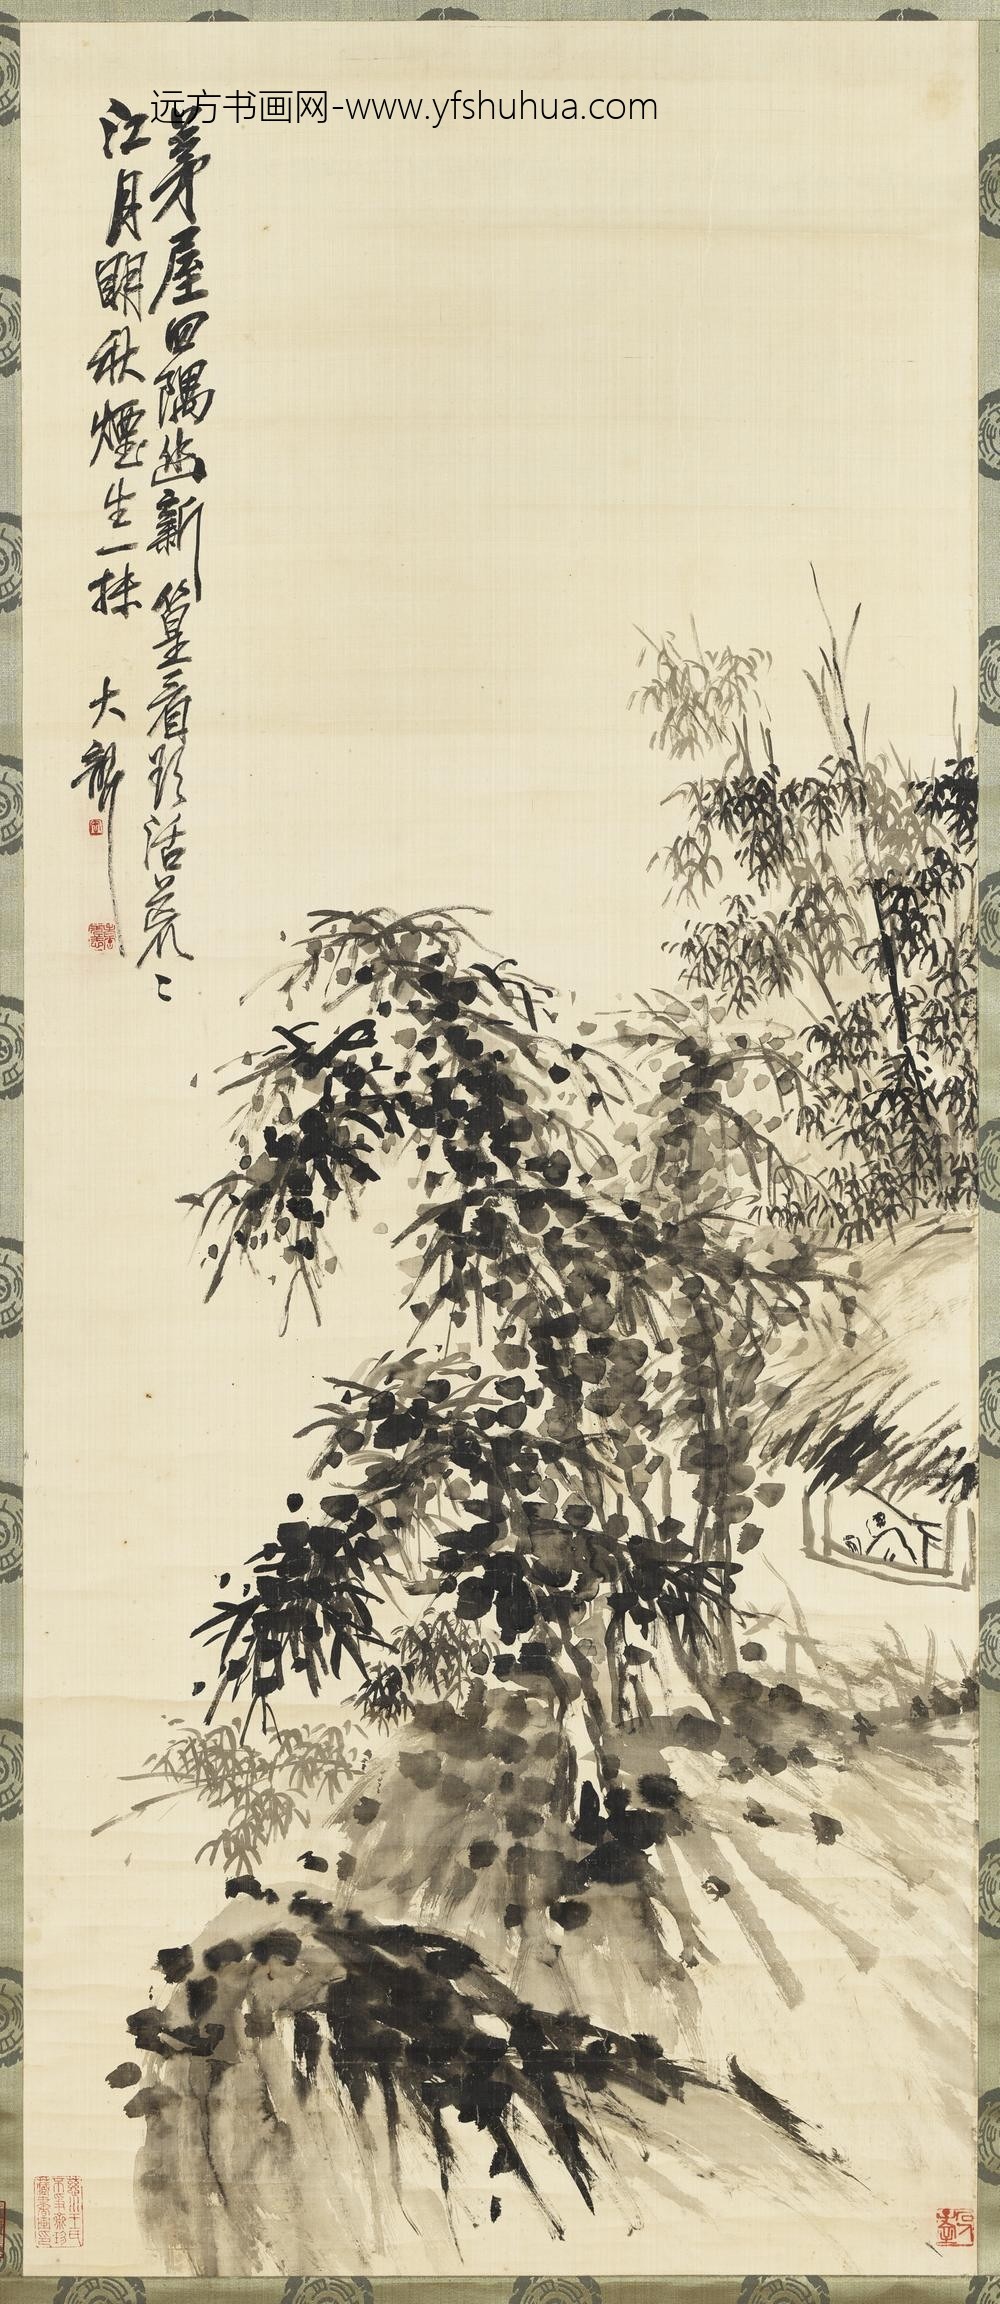 远方书画网-www.yfshuhua.com
茅屋四隅幽新篁看欲活荒〻
江月明秋煙生一抹
大聾